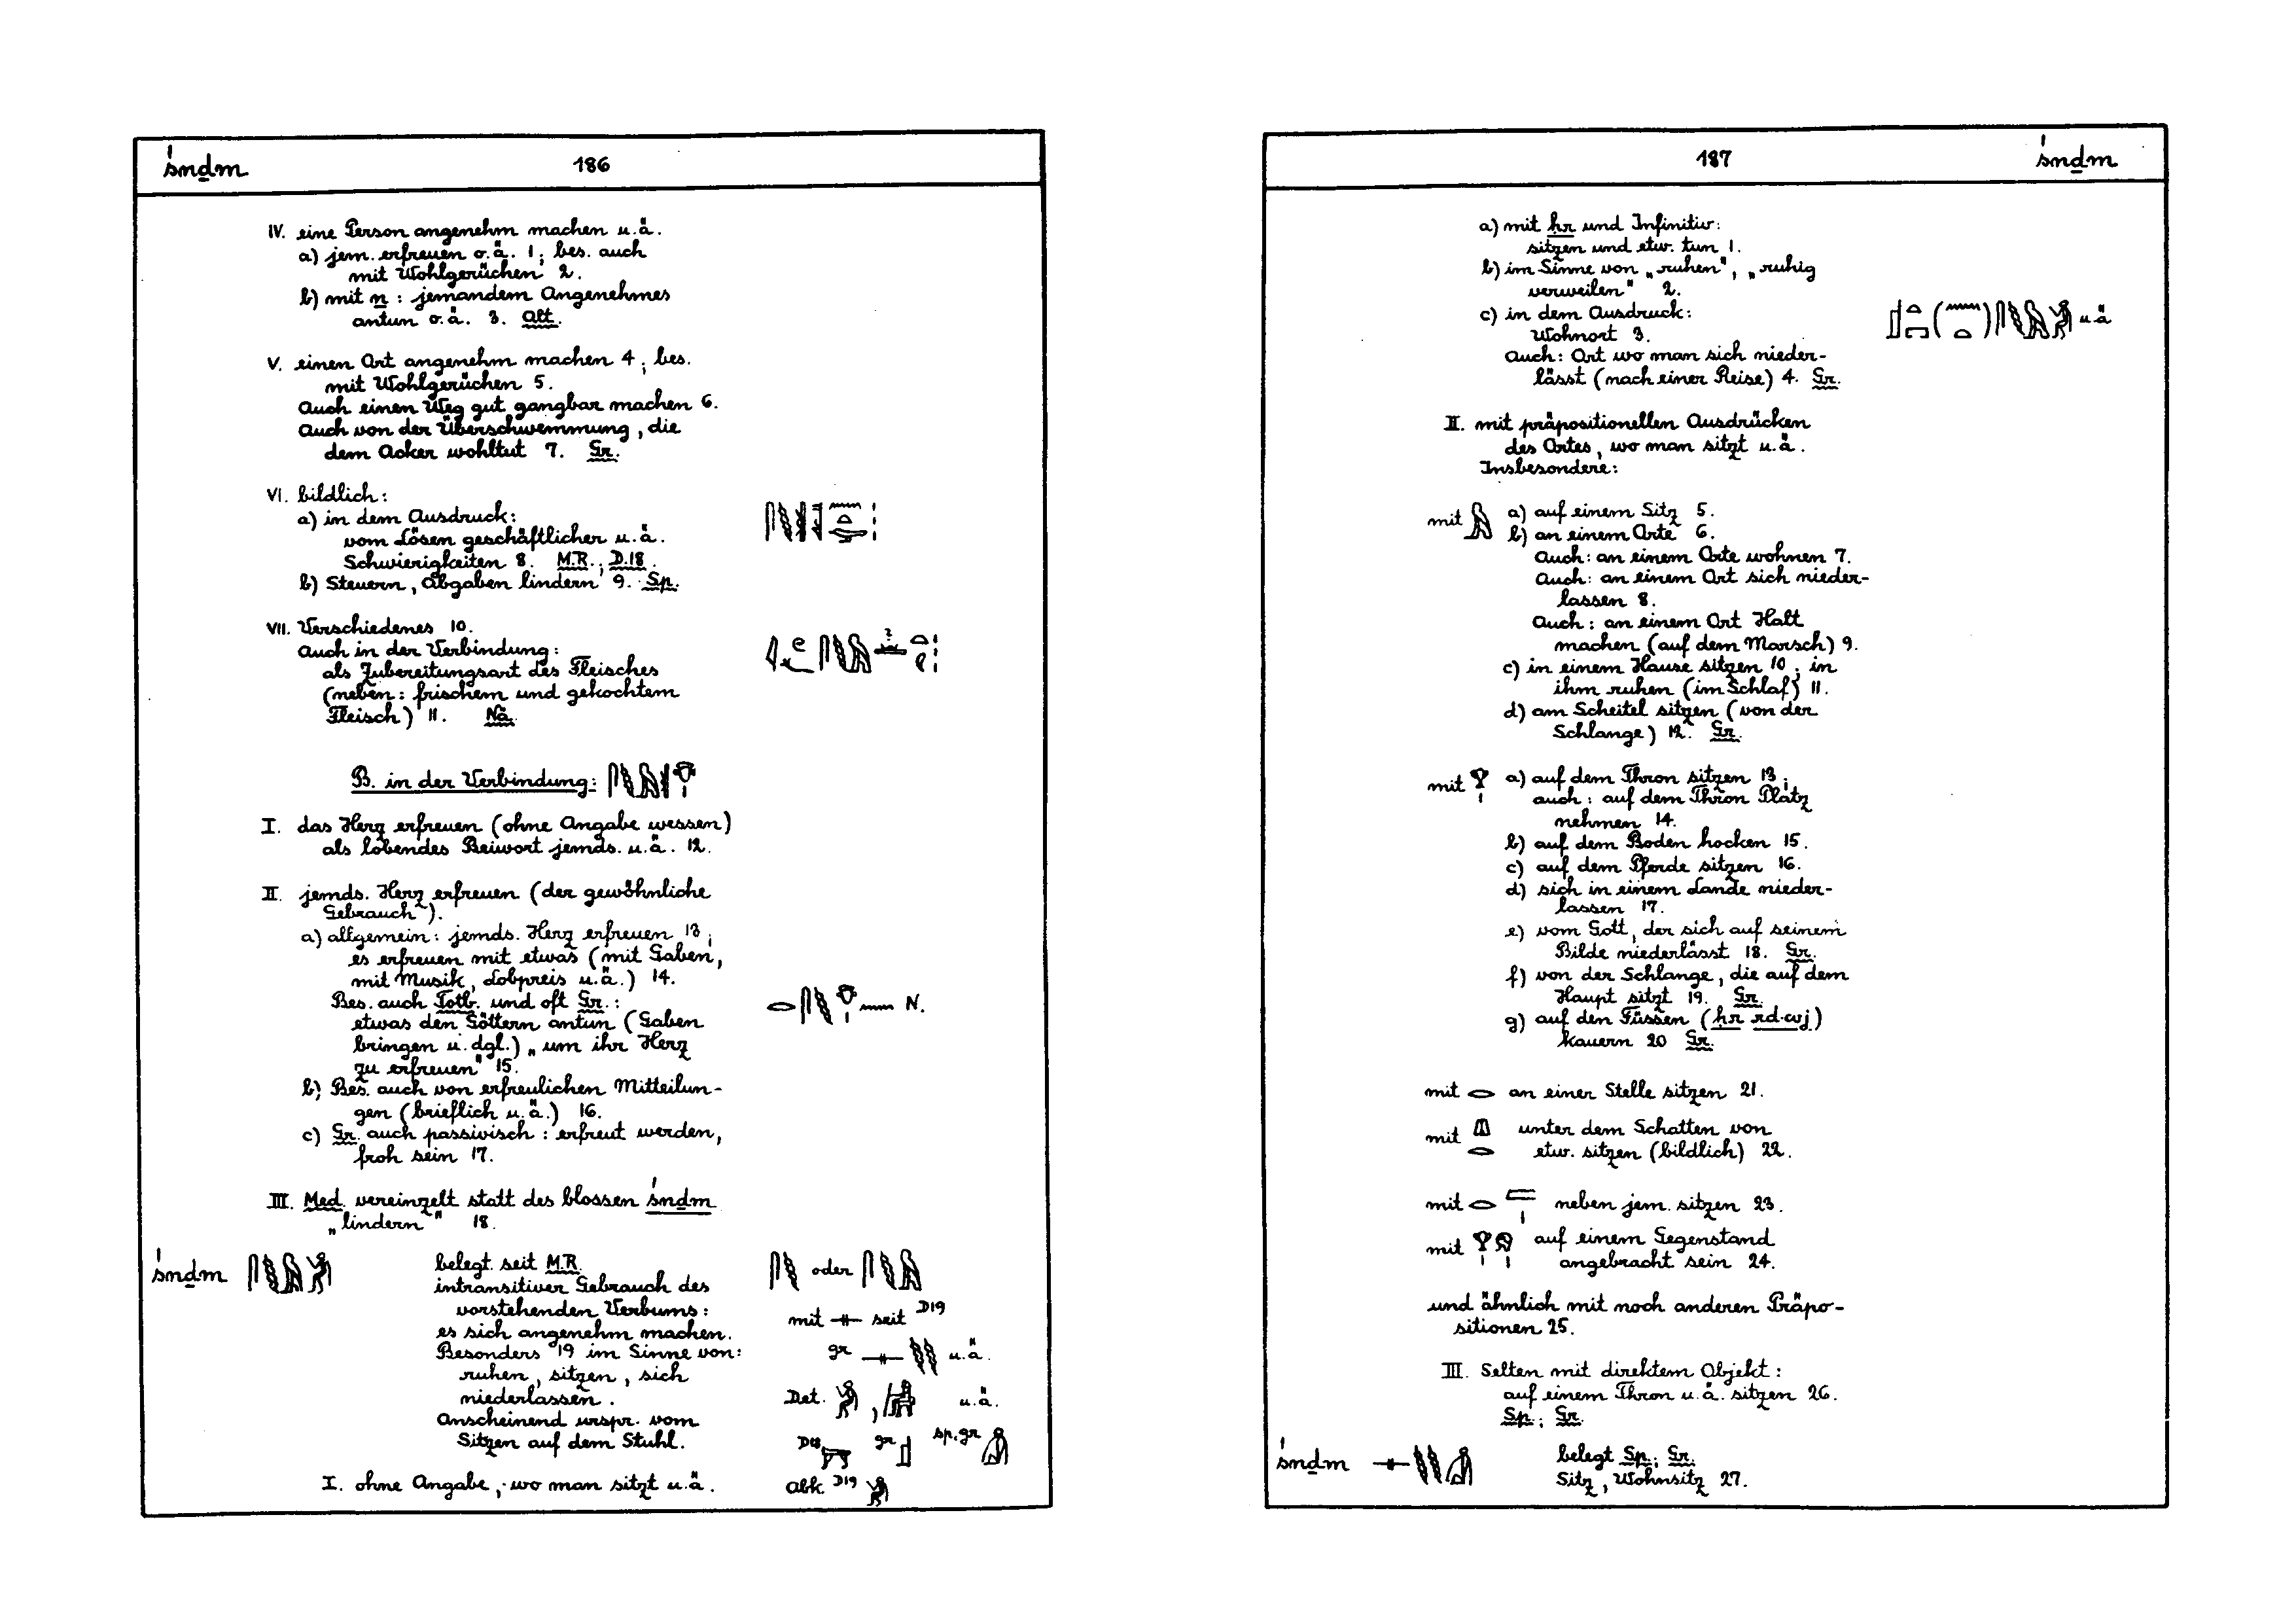 śnḏm
186
IV. eine Person angenehm machen u.ä.
a) jem. erfreuen o.ä. 1; bes. auch
mit Wohlgerüchen 2.
b) mit n : jemandem Angenehmes
antun o.ä. 3. Alt.
V. einen Ort angenehm machen 4; bes.
mit Wohlgerüchen 5.
Auch einen Weg gut gangbar machen 6.
Auch von der Überschwemmung, die
dem Acker wohltut 7. Gr.
VI. bildlich:
a) in dem Ausdruck:
vom Lösen geschäftlicher u.ä.
Schwierigkeiten 8. M.R.; D.18.
b) Steuern, Abgaben lindern 9. Sp.
VII. Verschiedenes 10.
Auch in der Verbindung:
als Zubereitungsart des Fleisches
(neben: frischem und gekochtem
Fleisch) 11. Nä.
B. in der Verbindung:
I. das Herz erfreuen (ohne Angabe wessen)
als lobendes Beiwort jemds. u.ä. 12.
II. jemds. Herz erfreuen (der gewöhnliche
Gebrauch).
a) allgemein: jemds. Herz erfreuen 13;
es erfreuen mit etwas (mit Gaben,
mit Musik, Lobpreis u.ä.) 14.
Bes. auch Totb. und oft Gr.:
etwas den Göttern antun (Gaben
bringen u. dgl.) „um ihr Herz
zu erfreuen" 15.
N.
b) Bes. auch von erfreulichen Mitteilun-
gen (brieflich u.ä.) 16.
c) Gr. auch passivisch: erfreut werden,
froh sein 17.
III. Med. vereinzelt statt des blossen śnḏm
„lindern" 18.
śnḏm
belegt seit M.R.
intransitiver Gebrauch des
vorstehenden Verbums:
es sich angenehm machen.
Besonders 19 im Sinne von:
ruhen, sitzen, sich
niederlassen.
Anscheinend urspr. vom
Sitzen auf dem Stuhl.
oder
mit seit D19
gr u.ä.
Det. , u.ä.
D18 gr sp.gr
Abk. D19
I. ohne Angabe, wo man sitzt u.ä.
187
śnḏm
a) mit ḥr und Infinitiv:
sitzen und etw. tun 1.
b) im Sinne von „ruhen", „ruhig
verweilen" 2.
c) in dem Ausdruck:
Wohnort 3.
u.ä
Auch: Ort wo man sich nieder-
lässt (nach einer Reise) 4. Gr.
II. mit präpositionellen Ausdrücken
des Ortes, wo man sitzt u.ä.
Insbesondere:
mit a) auf einem Sitz 5.
b) an einem Orte 6.
Auch: an einem Orte wohnen 7.
Auch: an einem Ort sich nieder-
lassen 8.
Auch: an einem Ort Halt
machen (auf dem Marsch) 9.
c) in einem Hause sitzen 10; in
ihm ruhen (im Schlaf) 11.
d) am Scheitel sitzen (von der
Schlange) 12. Gr.
mit a) auf dem Thron sitzen 13;
auch: auf dem Thron Platz
nehmen 14.
b) auf dem Boden hocken 15.
c) auf dem Pferde sitzen 16.
d) sich in einem Lande nieder-
lassen 17.
e) vom Gott, der sich auf seinem
Bilde niederlässt 18. Gr.
f) von der Schlange, die auf dem
Haupt sitzt 19. Gr.
g) auf den Füssen (ḥr rd·wj)
kauern 20 Gr.
mit an einer Stelle sitzen 21.
mit unter dem Schatten von
etw. sitzen (bildlich) 22.
mit neben jem. sitzen 23.
mit auf einem Gegenstand
angebracht sein 24.
und ähnlich mit noch anderen Präpo-
sitionen 25.
III. Selten mit direktem Objekt:
auf einem Thron u.ä. sitzen 26.
Sp.; Gr.
śnḏm
belegt Sp.; Gr.
Sitz, Wohnsitz 27.